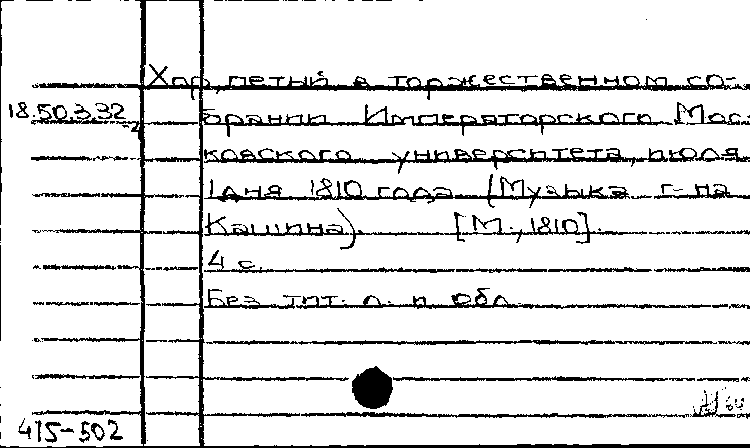 Хор, петый в торжественном со-
18.50.3.32 брании Императорского Мос-
-2
ковского университета, июля
1 дня 1810 года (Музыка г-на
Кашина). [М., 1810].
4 с.
Без тит. л. и обл.
415-502